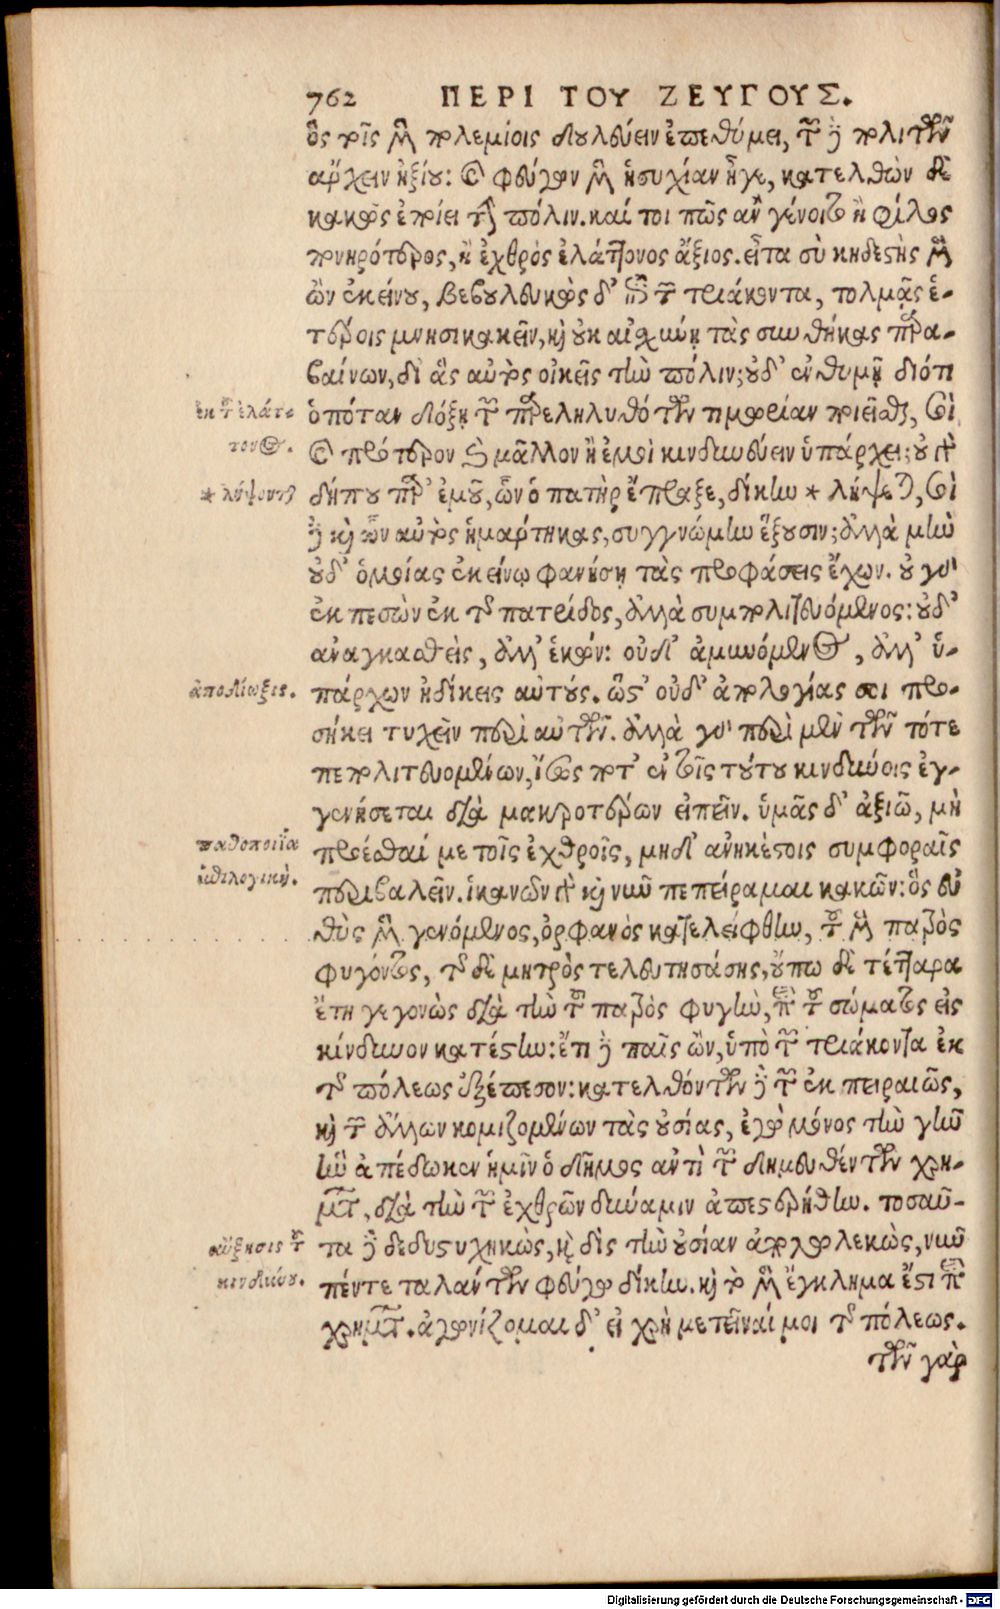 762 ΠΕΡΙ ΤΟΥ ΖΕΥΓΟΥΣ.
ὃς τοῖς μὲν πολεμίοις δουλεύειν ἐπεθύμει, τῶν δὲ πολιτῶν
ἄρχειν ἠξίου: καὶ φεύγων μὲν ἡσυχίαν ἦγε, κατελθὼν δὲ
κακῶς ἐποίει τὴν πόλιν. καί τοι πῶς ἂν γένοιτο ἢ φίλος
πονηρότερος, ἢ ἐχθρὸς ἐλάττονος ἄξιος. εἶτα σὺ κηδεστὴς μὲν
ὢν ἐκείνου, βεβουλευκὼς δ' ἐπὶ τῶν τριάκοντα, τολμᾷς ἑ-
τέροις μνησικακεῖν, καὶ οὐκ αἰσχύνῃ τὰς συνθήκας παρα-
βαίνων, δι' ἃς αὐτὸς οἰκεῖς τὴν πόλιν; οὐδ' ἐνθυμῇ διότι
ἐκ τοῦ ἐλάτ-
τονος.
ὁπόταν δόξῃ τῶν παρεληλυθότων τιμωρίαν ποιεῖσθαι, σοὶ
καὶ πρότερον καὶ μᾶλλον ἢ ἐμοὶ κινδυνεύειν ὑπάρχει; οὐ γὰρ
* λήψονται
δήπου παρ' ἐμοῦ, ὧν ὁ πατὴρ ἔπραξε, δίκην * λήψεται, σοὶ
δὲ καὶ ὧν αὐτὸς ἡμάρτηκας, συγγνώμην ἕξουσιν; ἀλλὰ μὴν
οὐδ' ὁμοίας ἐκείνῳ φανήσῃ τὰς προφάσεις ἔχων. οὐ γὰρ
ἐκπεσὼν ἐκ τῆς πατρίδος, ἀλλὰ συμπολιτευόμενος: οὐδ'
ἀναγκασθεὶς, ἀλλ' ἑκών: οὐδ' ἀμυνόμενος, ἀλλ' ὑ-
ἀποδίωξις.
πάρχων ἠδίκεις αὐτούς. ὥστ' οὐδ' ἀπολογίας σοι προ-
σήκει τυχεῖν παρὰ αὐτῶν. ἀλλὰ γὰρ περὶ μὲν τῶν τότε
πεπολιτευομένων, ἴσως ποτ' ἐν τοῖς τούτου κινδύνοις ἐγ-
γενήσεται διὰ μακροτέρων εἰπεῖν. ὑμᾶς δ' ἀξιῶ, μὴ
παθοποιΐα
ἐπιλογική.
προέσθαί με τοῖς ἐχθροῖς, μηδ' ἀνηκέστοις συμφοραῖς
περιβαλεῖν. ἱκανῶν γὰρ καὶ νῦν πεπείραμαι κακῶν: ὃς εὐ
θὺς μὲν γενόμενος, ὀρφανὸς κατελείφθην, τοῦ μὲν πατρὸς
φυγόντος, τῆς δὲ μητρὸς τελευτησάσης, οὔπω δὲ τέτταρα
ἔτη γεγονὼς διὰ τὴν τοῦ πατρὸς φυγὴν, περὶ τοῦ σώματος εἰς
κίνδυνον κατέστην: ἔτι δὲ παῖς ὢν, ὑπὸ τῶν τριάκοντα ἐκ
τῆς πόλεως ἐξέπεσον: κατελθόντων δὲ τῶν ἐκ πειραιῶς,
καὶ τῶν ἄλλων κομιζομένων τὰς οὐσίας, ἐγὼ μόνος τὴν γῆν
ἣν ἀπέδωκεν ἡμῖν ὁ δῆμος ἀντὶ τῶν δημευθέντων χρη-
μάτων, διὰ τὴν τῶν ἐχθρῶν δύναμιν ἀπεστερήθην. τοσαῦ-
αὔξησις τοῦ
κινδύνου.
τα δὲ δεδυστυχηκὼς, καὶ δὶς τὴν οὐσίαν ἀπολωλεκὼς, νῦν
πέντε ταλάντων φεύγω δίκην. καὶ τὸ μὲν ἔγκλημα ἔστι περὶ
χρημάτων. ἀγωνίζομαι δ' εἰ χρὴ μετεῖναί μοι τῆς πόλεως.
τῶν γὰρ
Digitalisierung gefördert durch die Deutsche Forschungsgemeinschaft - DFG